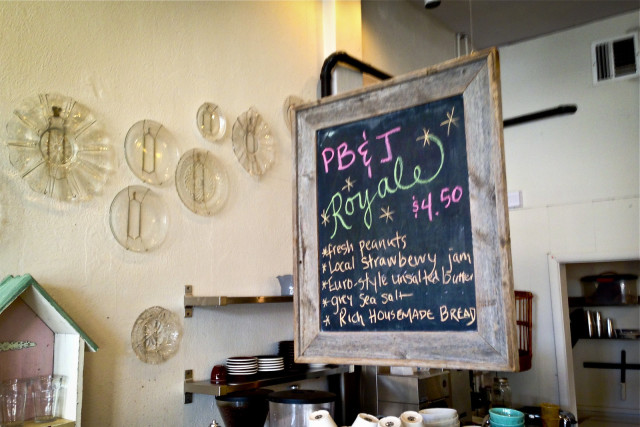 PB & J
Royale
$4.50
*fresh peanuts
*Local strawberry jam
*Euro-style unsalted butter
*grey sea salt
* Rich HOUSEMADE BREAD